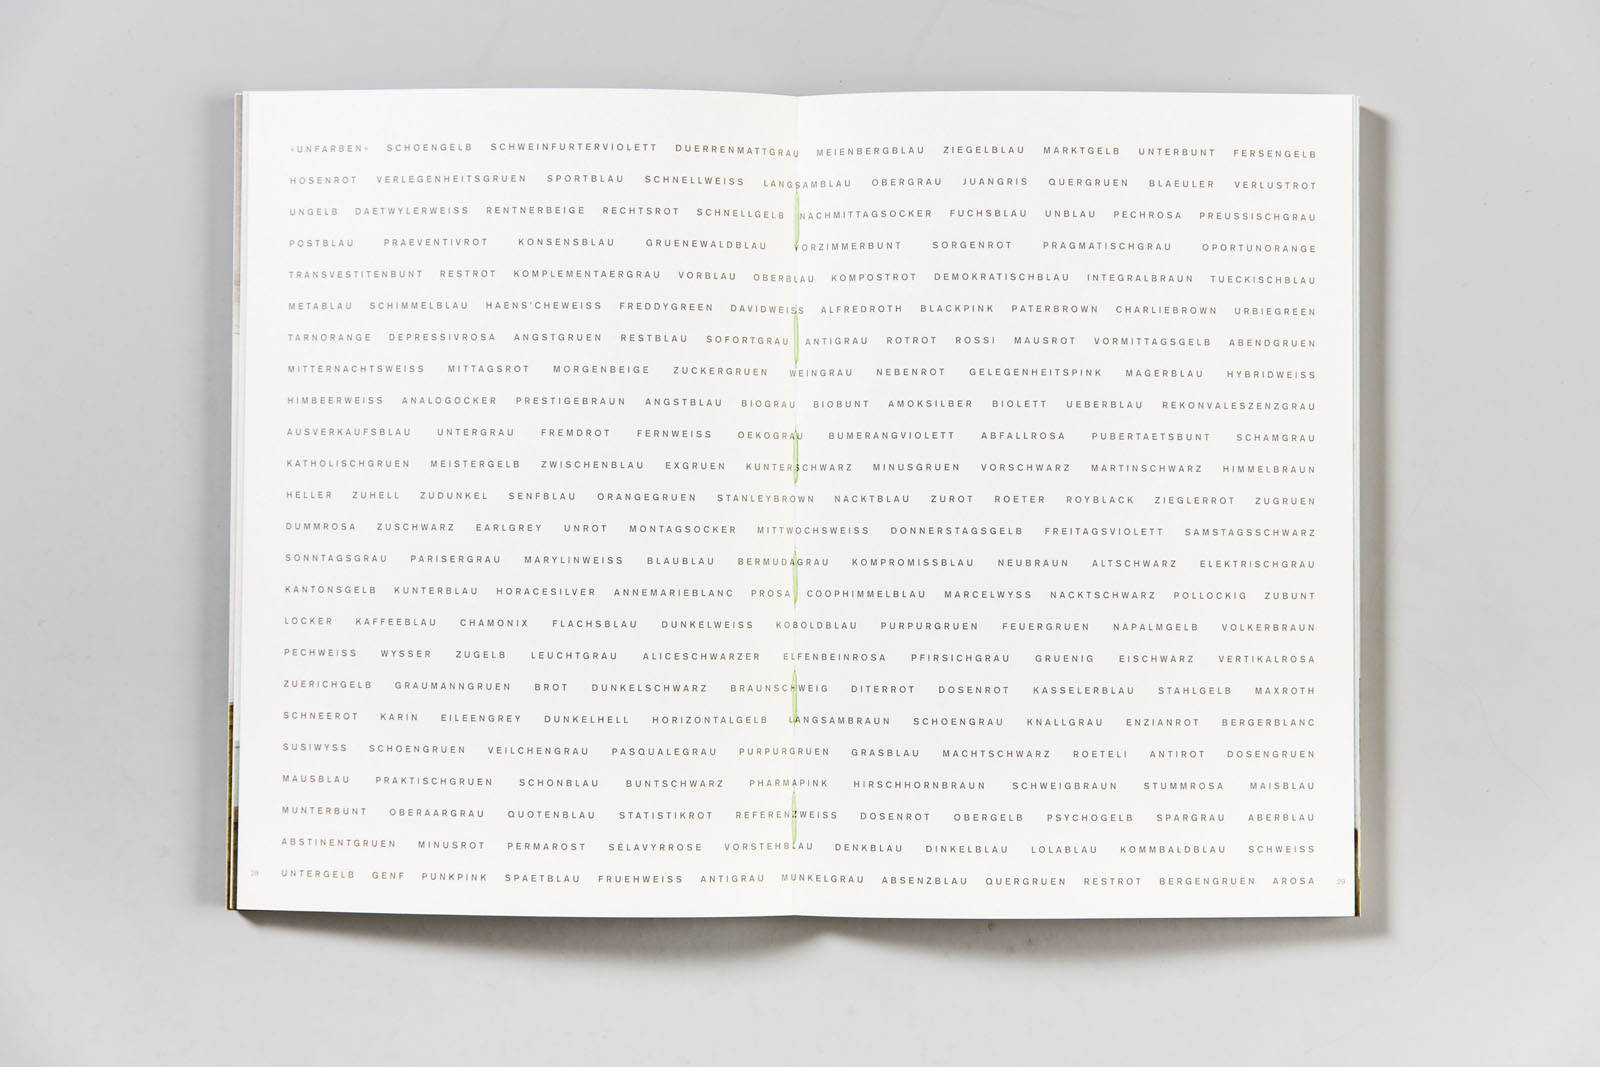 «UNFARBEN» SCHOENGELB SCHWEINFURTERVIOLETT DUERRENMATTGRAU MEIENBERGBLAU ZIEGELBLAU MARKTGELB UNTERBUNT FERSENGELB
HOSENROT VERLEGENHEITSGRUEN SPORTBLAU SCHNELLWEISS LANGSAMBLAU OBERGRAU JUANGRIS QUERGRUEN BLAEULER VERLUSTROT
UNGELB DAETWYLERWEISS RENTNERBEIGE RECHTSROT SCHNELLGELB NACHMITTAGSOCKER FUCHSBLAU UNBLAU PECHROSA PREUSSISCHGRAU
POSTBLAU PRAEVENTIVROT KONSENSBLAU GRUENEWALDBLAU VORZIMMERBUNT SORGENROT PRAGMATISCHGRAU OPORTUNORANGE
TRANSVESTITENBUNT RESTROT KOMPLEMENTAERGRAU VORBLAU OBERBLAU KOMPOSTROT DEMOKRATISCHBLAU INTEGRALBRAUN TUECKISCHBLAU
METABLAU SCHIMMELBLAU HAENS'CHEWEISS FREDDYGREEN DAVIDWEISS ALFREDROTH BLACKPINK PATERBROWN CHARLIEBROWN URBIEGREEN
TARNORANGE DEPRESSIVROSA ANGSTGRUEN RESTBLAU SOFORTGRAU ANTIGRAU ROTROT ROSSI MAUSROT VORMITTAGSGELB ABENDGRUEN
MITTERNACHTSWEISS MITTAGSROT MORGENBEIGE ZUCKERGRUEN WEINGRAU NEBENROT GELEGENHEITSPINK MAGERBLAU HYBRIDWEISS
HIMBEERWEISS ANALOGOCKER PRESTIGEBRAUN ANGSTBLAU BIOGRAU BIOBUNT AMOKSILBER BIOLETT UEBERBLAU REKONVALESZENZGRAU
AUSVERKAUFSBLAU UNTERGRAU FREMDROT FERNWEISS OEKOGRAU BUMERANGVIOLETT ABFALLROSA PUBERTAETSBUNT SCHAMGRAU
KATHOLISCHGRUEN MEISTERGELB ZWISCHENBLAU EXGRUEN KUNTERSCHWARZ MINUSGRUEN VORSCHWARZ MARTINSCHWARZ HIMMELBRAUN
HELLER ZUHELL ZUDUNKEL SENFBLAU ORANGEGRUEN STANLEYBROWN NACKTBLAU ZUROT ROETER ROYBLACK ZIEGLERROT ZUGRUEN
DUMMROSA ZUSCHWARZ EARLGREY UNROT MONTAGSOCKER MITTWOCHSWEISS DONNERSTAGSGELB FREITAGSVIOLETT SAMSTAGSSCHWARZ
SONNTAGSGRAU PARISERGRAU MARYLINWEISS BLAUBLAU BERMUDAGRAU KOMPROMISSBLAU NEUBRAUN ALTSCHWARZ ELEKTRISCHGRAU
KANTONSGELB KUNTERBLAU HORACESILVER ANNEMARIEBLANC PROSA COOPHIMMELBLAU MARCELWYSS NACKTSCHWARZ POLLOCKIG ZUBUNT
LOCKER KAFFEEBLAU CHAMONIX FLACHSBLAU DUNKELWEISS KOBOLDBLAU PURPURGRUEN FEUERGRUEN NAPALMGELB VOLKERBRAUN
PECHWEISS WYSSER ZUGELB LEUCHTGRAU ALICESCHWARZER ELFENBEINROSA PFIRSICHGRAU GRUENIG EISCHWARZ VERTIKALROSA
ZUERICHGELB GRAUMANNGRUEN BROT DUNKELSCHWARZ BRAUNSCHWEIG DITERROT DOSENROT KASSELERBLAU STAHLGELB MAXROTH
SCHNEEROT KARIN EILEENGREY DUNKELHELL HORIZONTALGELB LANGSAMBRAUN SCHOENGRAU KNALLGRAU ENZIANROT BERGERBLANC
SUSIWYSS SCHOENGRUEN VEILCHENGRAU PASQUALEGRAU PURPURGRUEN GRASBLAU MACHTSCHWARZ ROETELI ANTIROT DOSENGRUEN
MAUSBLAU PRAKTISCHGRUEN SCHONBLAU BUNTSCHWARZ PHARMAPINK HIRSCHHORNBRAUN SCHWEIGBRAUN STUMMROSA MAISBLAU
MUNTERBUNT OBERAARGRAU QUOTENBLAU STATISTIKROT REFERENZWEISS DOSENROT OBERGELB PSYCHOGELB SPARGRAU ABERBLAU
ABSTINENTGRUEN MINUSROT PERMAROST SÉLAVYRROSE VORSTEHBLAU DENKBLAU DINKELBLAU LOLABLAU KOMMBALDBLAU SCHWEISS
28 UNTERGELB GENF PUNKPINK SPAETBLAU FRUEHWEISS ANTIGRAU MUNKELGRAU ABSENZBLAU QUERGRUEN RESTROT BERGENGRUEN AROSA 29